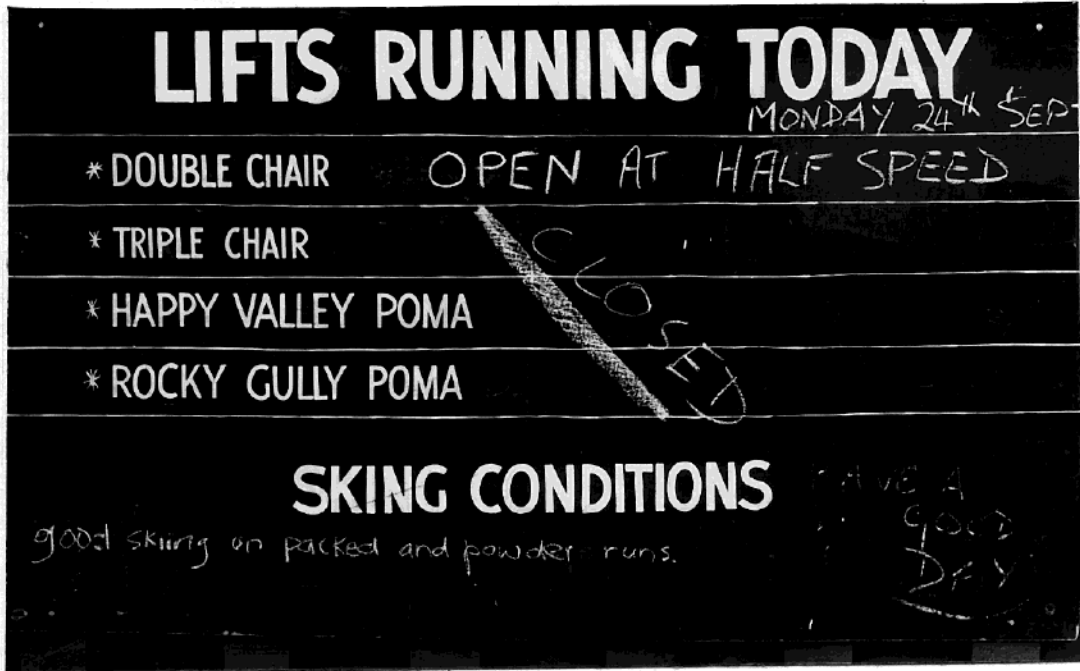 LIFTS RUNNING TODAY
MONDAY 24TH SEPT
* DOUBLE CHAIR OPEN AT HALF SPEED
* TRIPLE CHAIR
* HAPPY VALLEY POMA
* ROCKY GULLY POMA
CLOSED
SKING CONDITIONS
good skiing on packed and powder runs.
HAVE A
GOOD
DAY